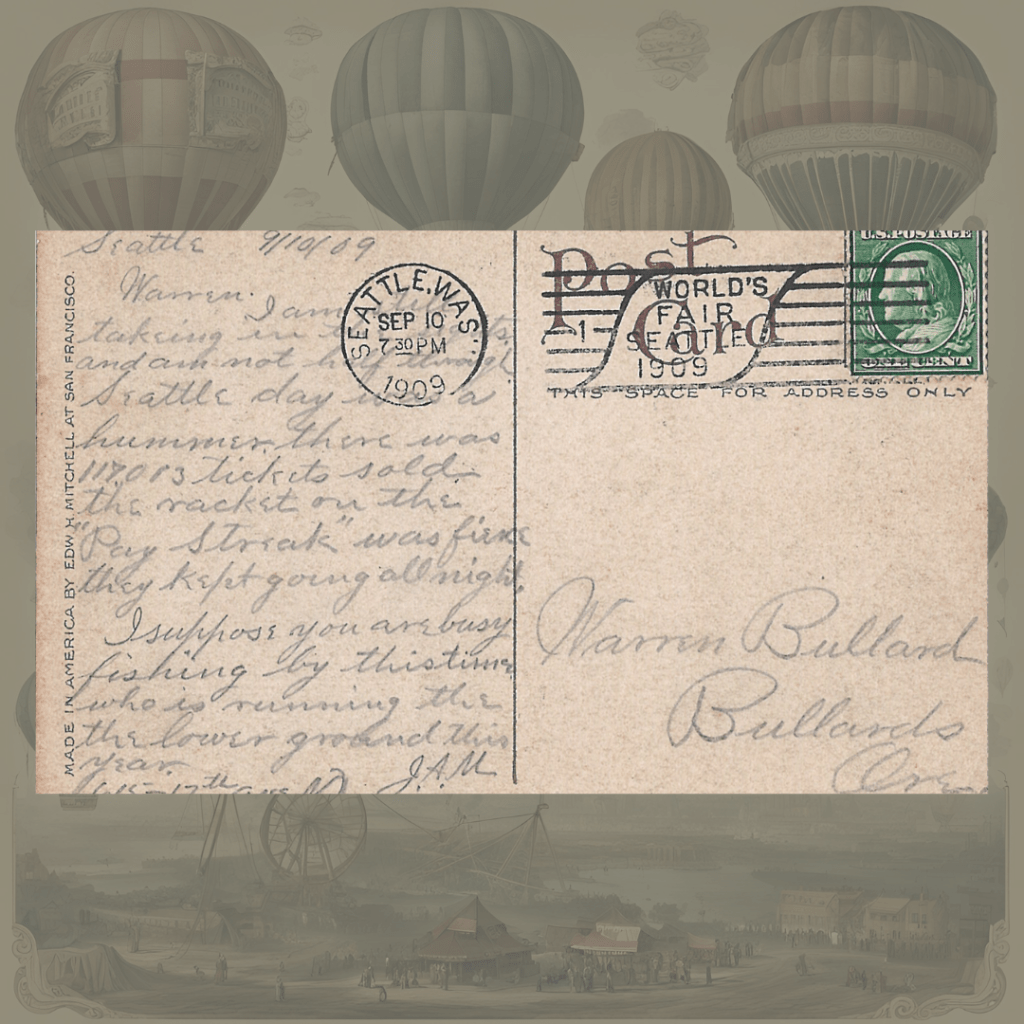 Seattle 9/10/09
Warren.
I am
takeing in
and am not
Seattle day was a
hummer. there was
117,013 tickets sold.
the racket on the
"Pay Streak" was fierce
they kept going all night.
I suppose you are busy
fishing by this time
who is running the
the lower ground this
year.
J.A.M.
615-17th ave N
MADE IN AMERICA BY EDW. H. MITCHELL AT SAN FRANCISCO.
SEATTLE, WAS
SEP 10
7 30 PM
1909
Post Card
1
WORLD'S
FAIR
SEATTLE
1909
U.S. POSTAGE
THIS SPACE FOR ADDRESS ONLY
Warren Bullard
Bullards
Ore